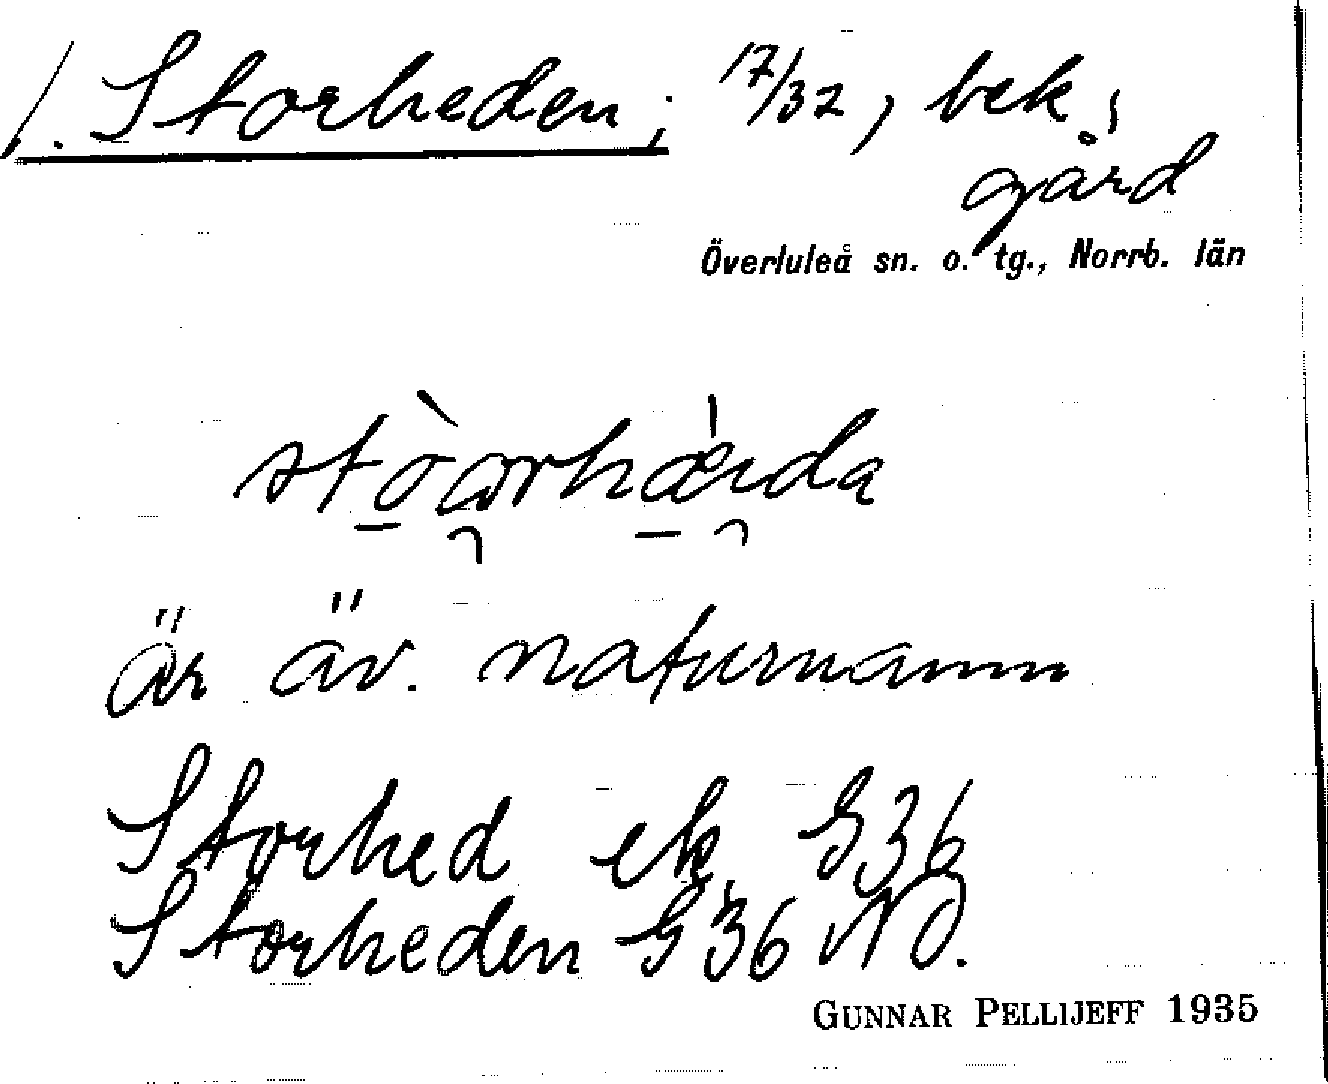 1. Storheden; 17/32, bek,
gård
Överluleå sn. o. tg., Norrb. län
är äv. naturnamn
Storhed ek. G36
Storheden G36 NO.
GUNNAR PELLIJEFF 1935